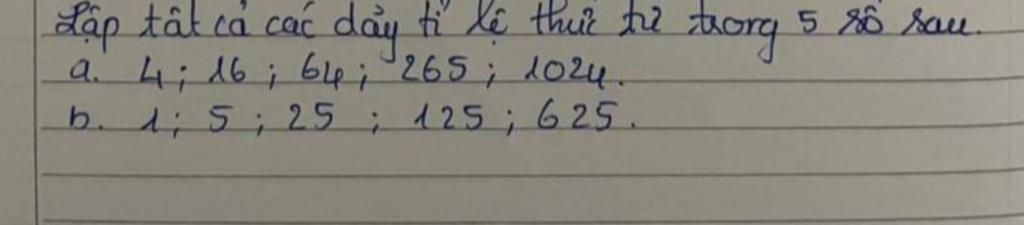 Lập tất cả các dảy tỉ lệ thức từ trong 5 số sau.
a. 4; 16; 64; 265; 1024.
b. 1; 5; 25; 125; 625.